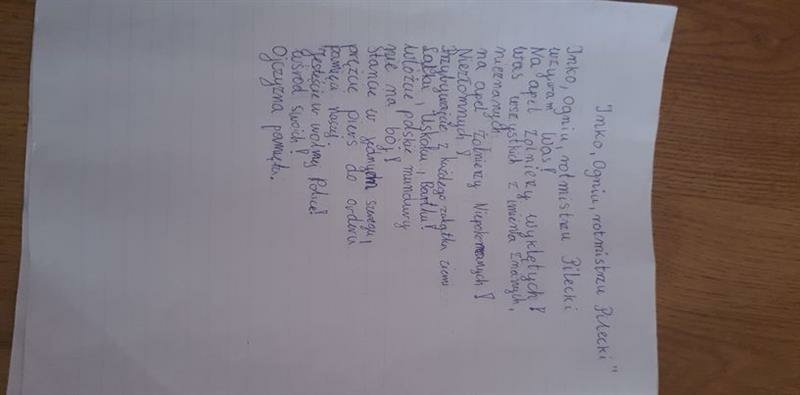 Inko, Ogniu, rotmistrzu Pilecki"
Inko, Ogniu, rotmistrzu Pilecki
wzywam Was!
Na apel Żołnierzy wyklętych!
Was wszystkich z imienia znanych,
nieznanych
na apel Żołnierzy Niepokonanych!
Niezłomnych!
Przybywajcie z każdego zakątka ziemi
Łąpko, Uskoku, Bartku!
włóżcie polskie mundury
nie na bój!
Stańcie w jednym szeregu,
prężcie pierś do orderu
pamięci naszej.
Jesteście w wolnej Polsce!
wśród swoich!
Ojczyzna pamięta.